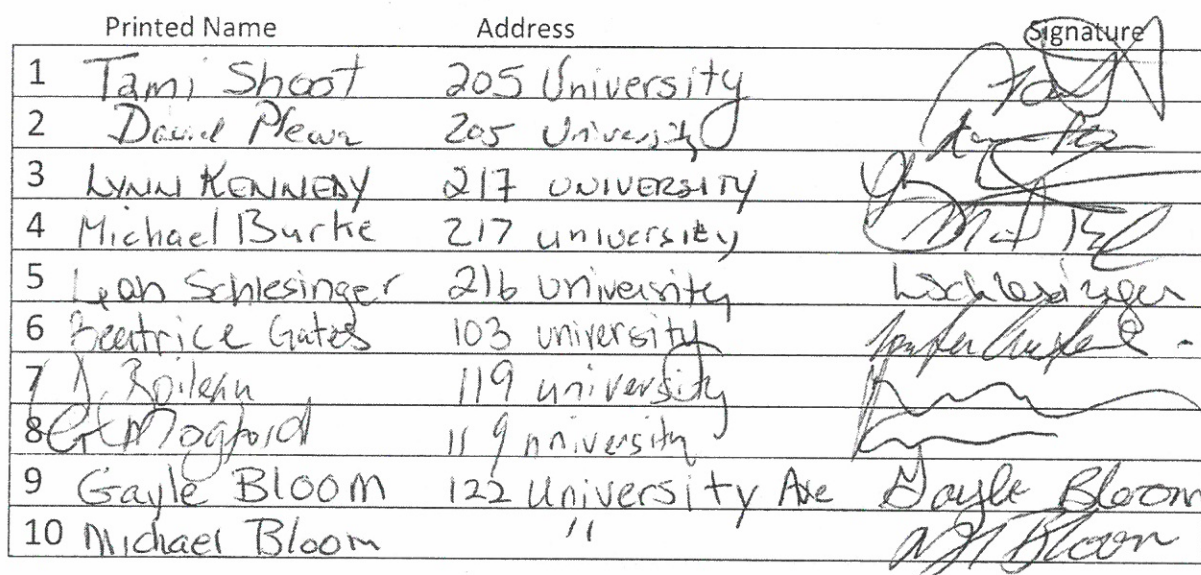 Printed Name Address Signature
1 Tami Shoot 205 University
2 David Plewa 205 University
3 LYNN KENNEDY 217 UNIVERSITY
4 Michael Burke 217 university
5 Leah Schlesinger 216 university LSchlesinger
6 Beatrice Gates 103 university
7 119 university
8 Mogford 119 university
9 Gayle Bloom 122 University Ave Gayle Bloom
10 Michael Bloom " Bloom